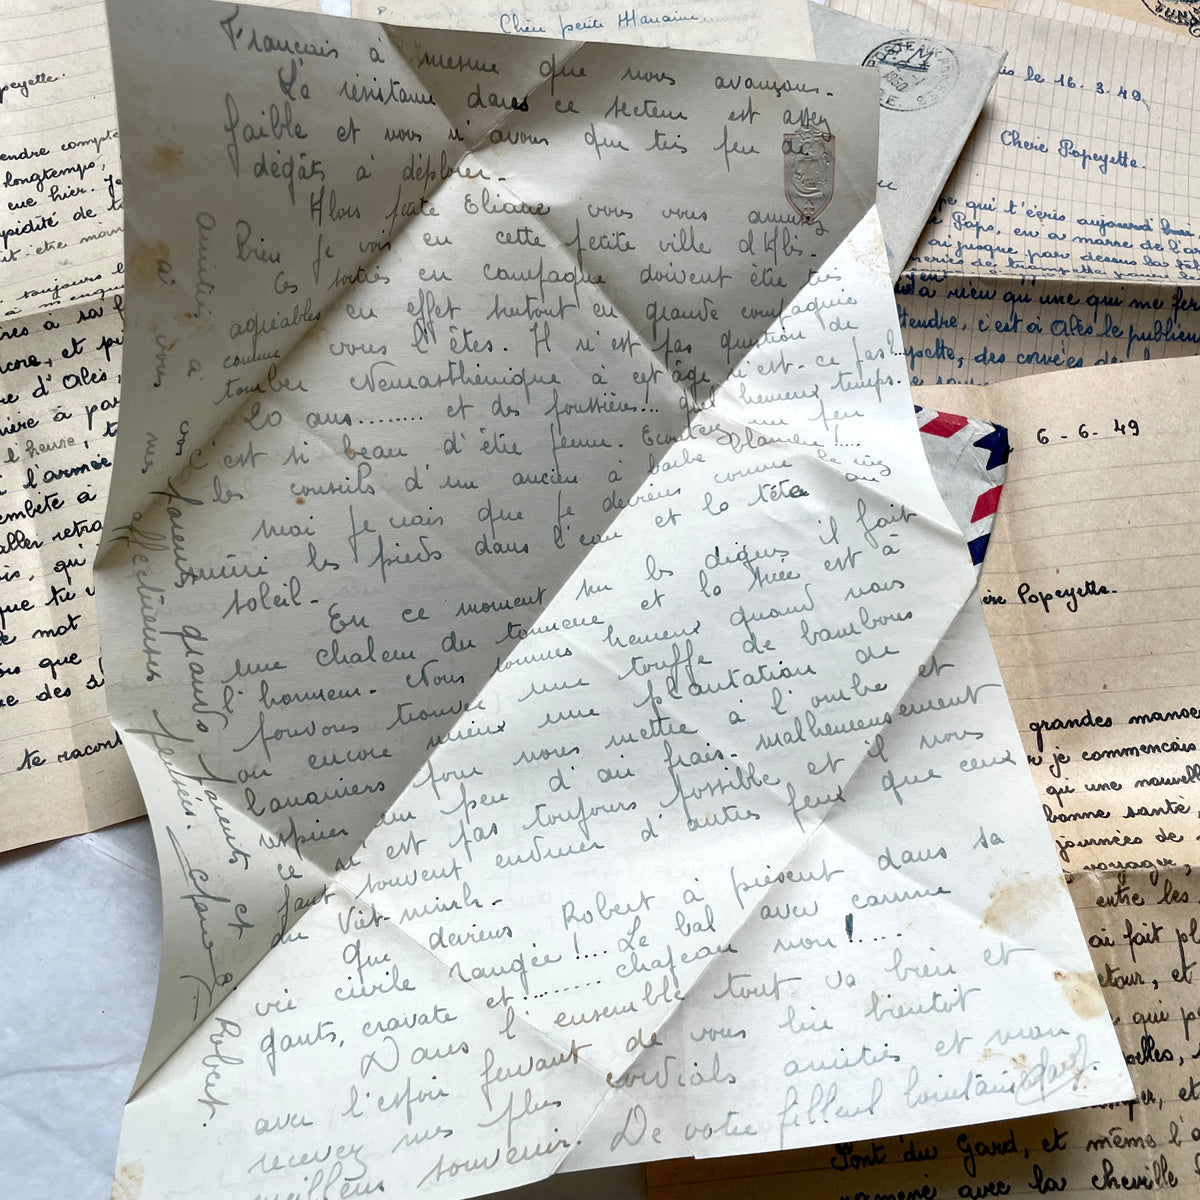 Français à mesure que nous avançons.
La résistance dans ce secteur est assez
faible et nous n'avons que très peu de
dégâts à déplorer.
Alors petite Eliane vous vous amusez
bien je vois en cette petite ville d'Alès.
Ces sorties en campagne doivent être très
agréables en effet surtout en grande compagnie
comme vous l'êtes. Il n'est pas question de
tomber Neurasthénique à cet âge n'est-ce pas!..
20 ans....... et des poussières... quel heureux temps.
c'est si beau d'être jeune. Ecoutez un peu
les conseils d'un ancien à barbe blanche!...
moi je crois que je deviens comme le riz
mûri les pieds dans l'eau et la tête au
soleil.
En ce moment sur les digues il fait
une chaleur du tonnerre et la suée est à
l'honneur. Nous sommes heureux quand nous
pouvons trouver une touffe de bambous
ou encore mieux une plantation de
bananiers pour nous mettre à l'ombre et
respirer un peu d'air frais. malheureusement
ce n'est pas toujours possible et il nous
faut souvent endurer d'autres feux que ceux
du Viet-minh.
Que devient Robert à présent dans sa
vie civile rangée!... Le bal avec canne
gants, cravate et....... chapeau mou!....
Dans l'ensemble tout va bien et
avec l'espoir fervant de vous lire bientôt
recevez mes plus cordials amitiés et mon
meilleur souvenir. De votre filleul lointain
amitiés à vos parents grands parents et à Robert.
à vous mes affectueuses pensées.
Chère petite Marraine
1950
le 16.3.49
Chère Popeyette.
qui t'écris aujourd'hui
Paps, en a marre de l'ar
ai jusque par dessus la
rien qu'une qui me fer
ttendre, c'est à Alès le publier
des corvées de
6-6-49
ère Popeyette.
grandes manoe
je commencais
qu'une nouvell
bonne santé,
journées de
voyage,
entre les
ai fait pl
etour, et
qui p
elles,
mper, et
Pont du Gard, et même l'a
avec la cheville
peyette.
endre compte
longtemps,
que hier. Je
pidité de t
it être moin
toujours
res à sa
core, et pu
re d'Alès,
ière à par
l'heure, t
l'armée
embête à
aller retro
is, qu'
que tu v
mot
ois que
e des
te racont